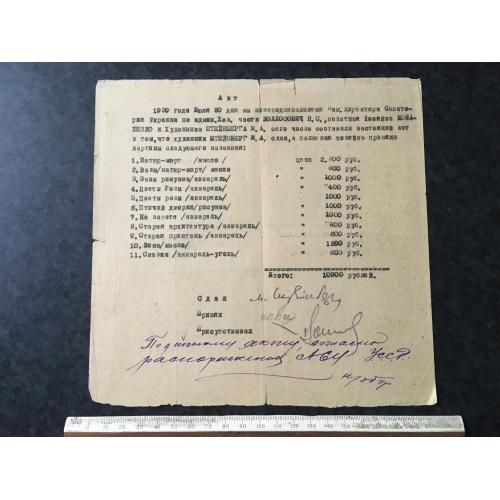 Акт
1939 года Июля 20 дня мы нижеподписавшиеся Зам. директора Санато-
рия Украина по админ. Хоз. части ВОЛЛОСОВИЧ Н.С., палатная хозяйка КОВА-
ЛЕНКО и Художника ШТЕЙНБЕРГА М.А. сего числа составили настоящий акт
в том, что художник ШТЕЙНБЕРГ М.А. сдал, а палатная хозяйка приняла
картины следующего названия:
1. Натюр-морт /масло/ цена 2.800 руб.
2. Вазы/натюр-морт/ масло " 800 руб.
3. Ваза рисунок/акварель/ " 1000 руб.
4. Цветы Розы /акварель/ " 400 руб.
5. Цветы розы /акварель/ 1000 руб.
6. Птичий дворик/рисунок/ " 1000 руб.
7. На закате /акварель/ " 1000 руб.
8. Старая архитектура /акварель/ " 800 руб.
9. Старая пристань /акварель/ " 600 руб.
10. Зима/масло/ " 1200 руб.
11. Сказка /акварель-уголь/ " 800 руб.
Итого: 10900 рублей.
Сдал
Принял
Присутствовал
По данному акту, согласно
распоряжения АСУ УССР
0 10 20 30 40 50 60 70 80 90 100 110 120 130 140 150 160 170 180 190